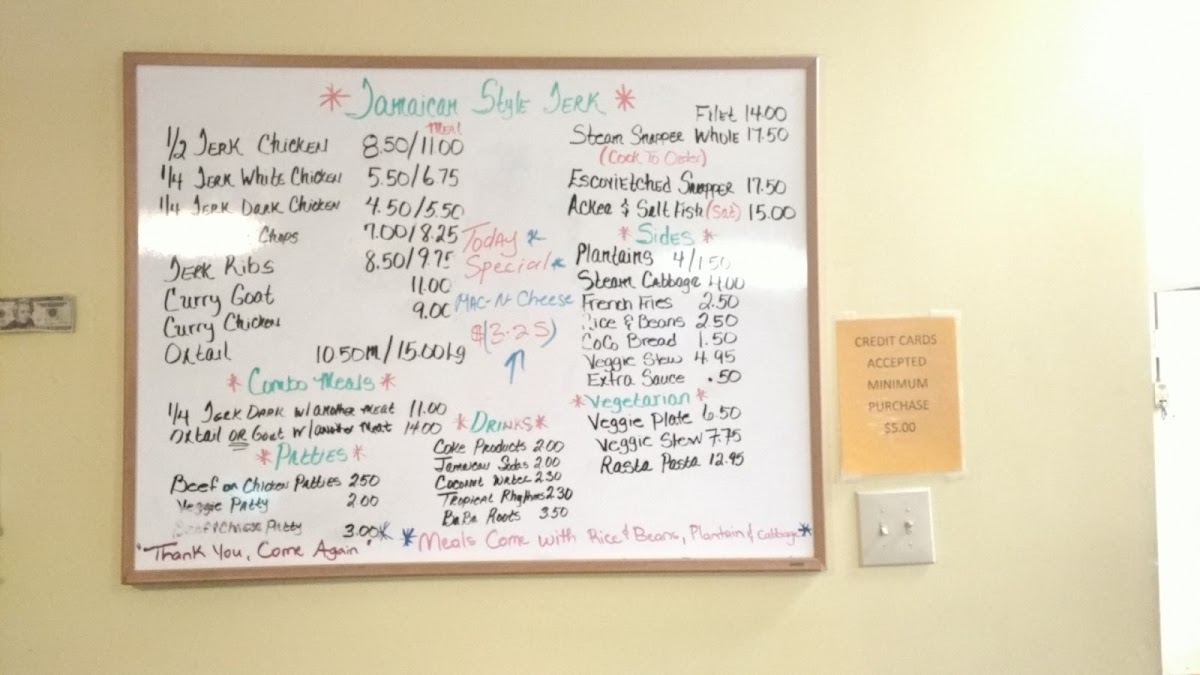 * Jamaican Style Jerk *
Meal
1/2 Jerk Chicken 8.50/11.00
1/4 Jerk White Chicken 5.50/6.75
1/4 Jerk Dark Chicken 4.50/5.50
Chops 7.00/8.25
Jerk Ribs 8.50/9.75
Curry Goat 11.00
Curry Chicken 9.00
Oxtail 10.50m/15.00Lg
* Combo Meals *
1/4 Jerk Dark w/another meat 11.00
Oxtail OR Goat w/another meat 14.00
* Patties *
Beef or Chicken Patties 2.50
Veggie Patty 2.00
Beef & Cheese Patty 3.00
"Thank You, Come Again"
Today *
Special *
Mac-N-Cheese
$(3.25)
* Drinks *
Coke Products 2.00
Jamaican Sodas 2.00
Coconut Water 2.30
Tropical Rhythms 2.30
BaBa Roots 3.50
Filet 14.00
Steam Snapper Whole 17.50
(Cook To Order)
Escovietched Snapper 17.50
Ackee & Saltfish (Sat) 15.00
* Sides *
Plantains 4/1.50
Steam Cabbage 4.00
French Fries 2.50
Rice & Beans 2.50
CoCo Bread 1.50
Veggie Stew 4.95
Extra Sauce .50
* Vegetarian *
Veggie Plate 6.50
Veggie Stew 7.75
Rasta Pasta 12.95
* Meals Come with Rice & Beans, Plantain & Cabbage *
CREDIT CARDS
ACCEPTED
MINIMUM
PURCHASE
$5.00